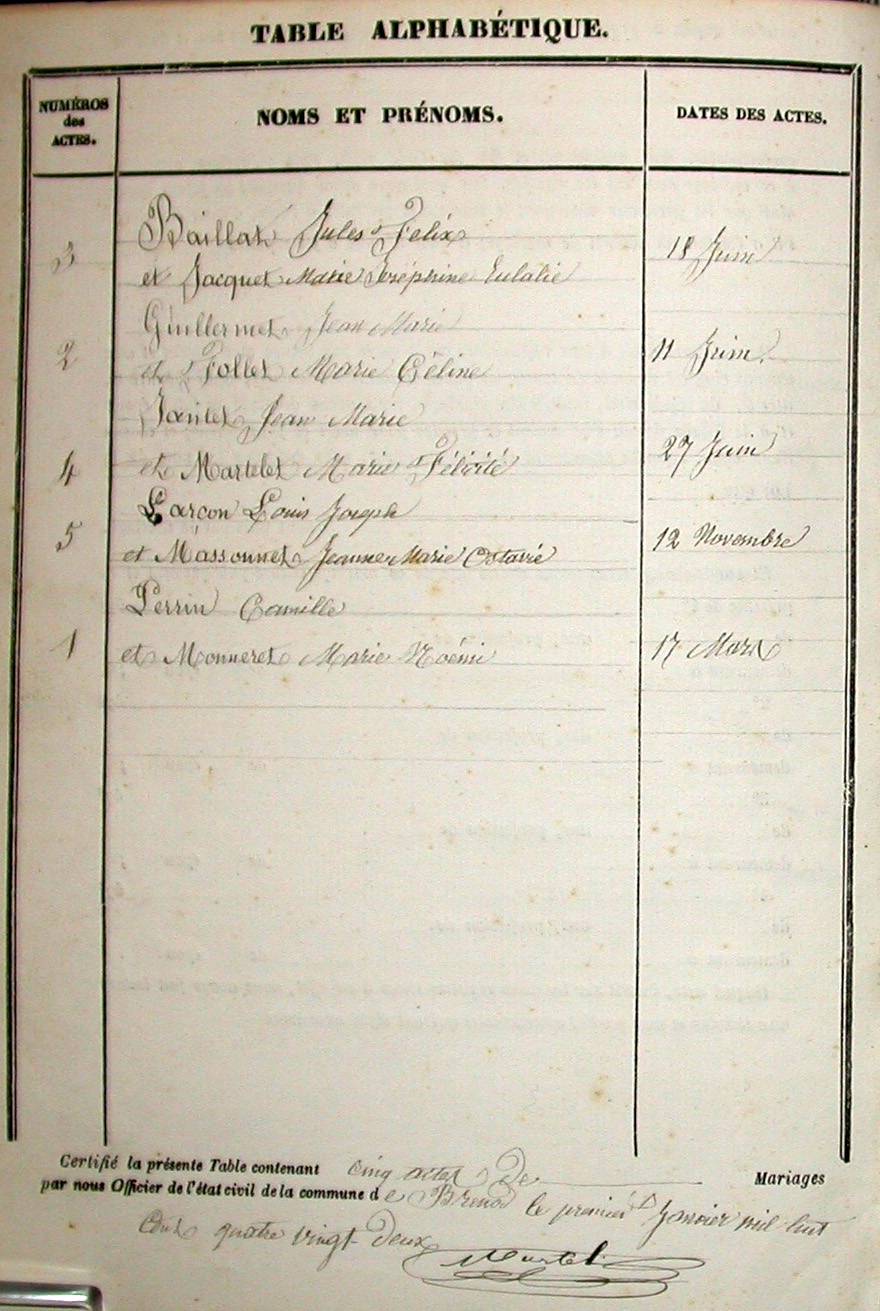 TABLE ALPHABÉTIQUE.
NUMÉROS des ACTES.
NOMS ET PRÉNOMS.
DATES DES ACTES.
3 Baillat Jules Félix
et Jacquet Marie Joséphine Eulalie 18 Juin
Guillermet Jean Marie
2 et Follet Marie Céline 11 Juin.
Jantet Jean Marie
4 et Martelet Marie Félicité 27 Juin
Larçon Louis Joseph
5 et Massonnet Jeanne Marie Octavie 12 Novembre
Perrin Camille
1 et Monneret Marie Noémi 17 Mars
Certifié la présente Table contenant cinq actes de Mariages
par nous Officier de l'état civil de la commune de Brenod le premier Janvier mil huit
cent quatre vingt deux